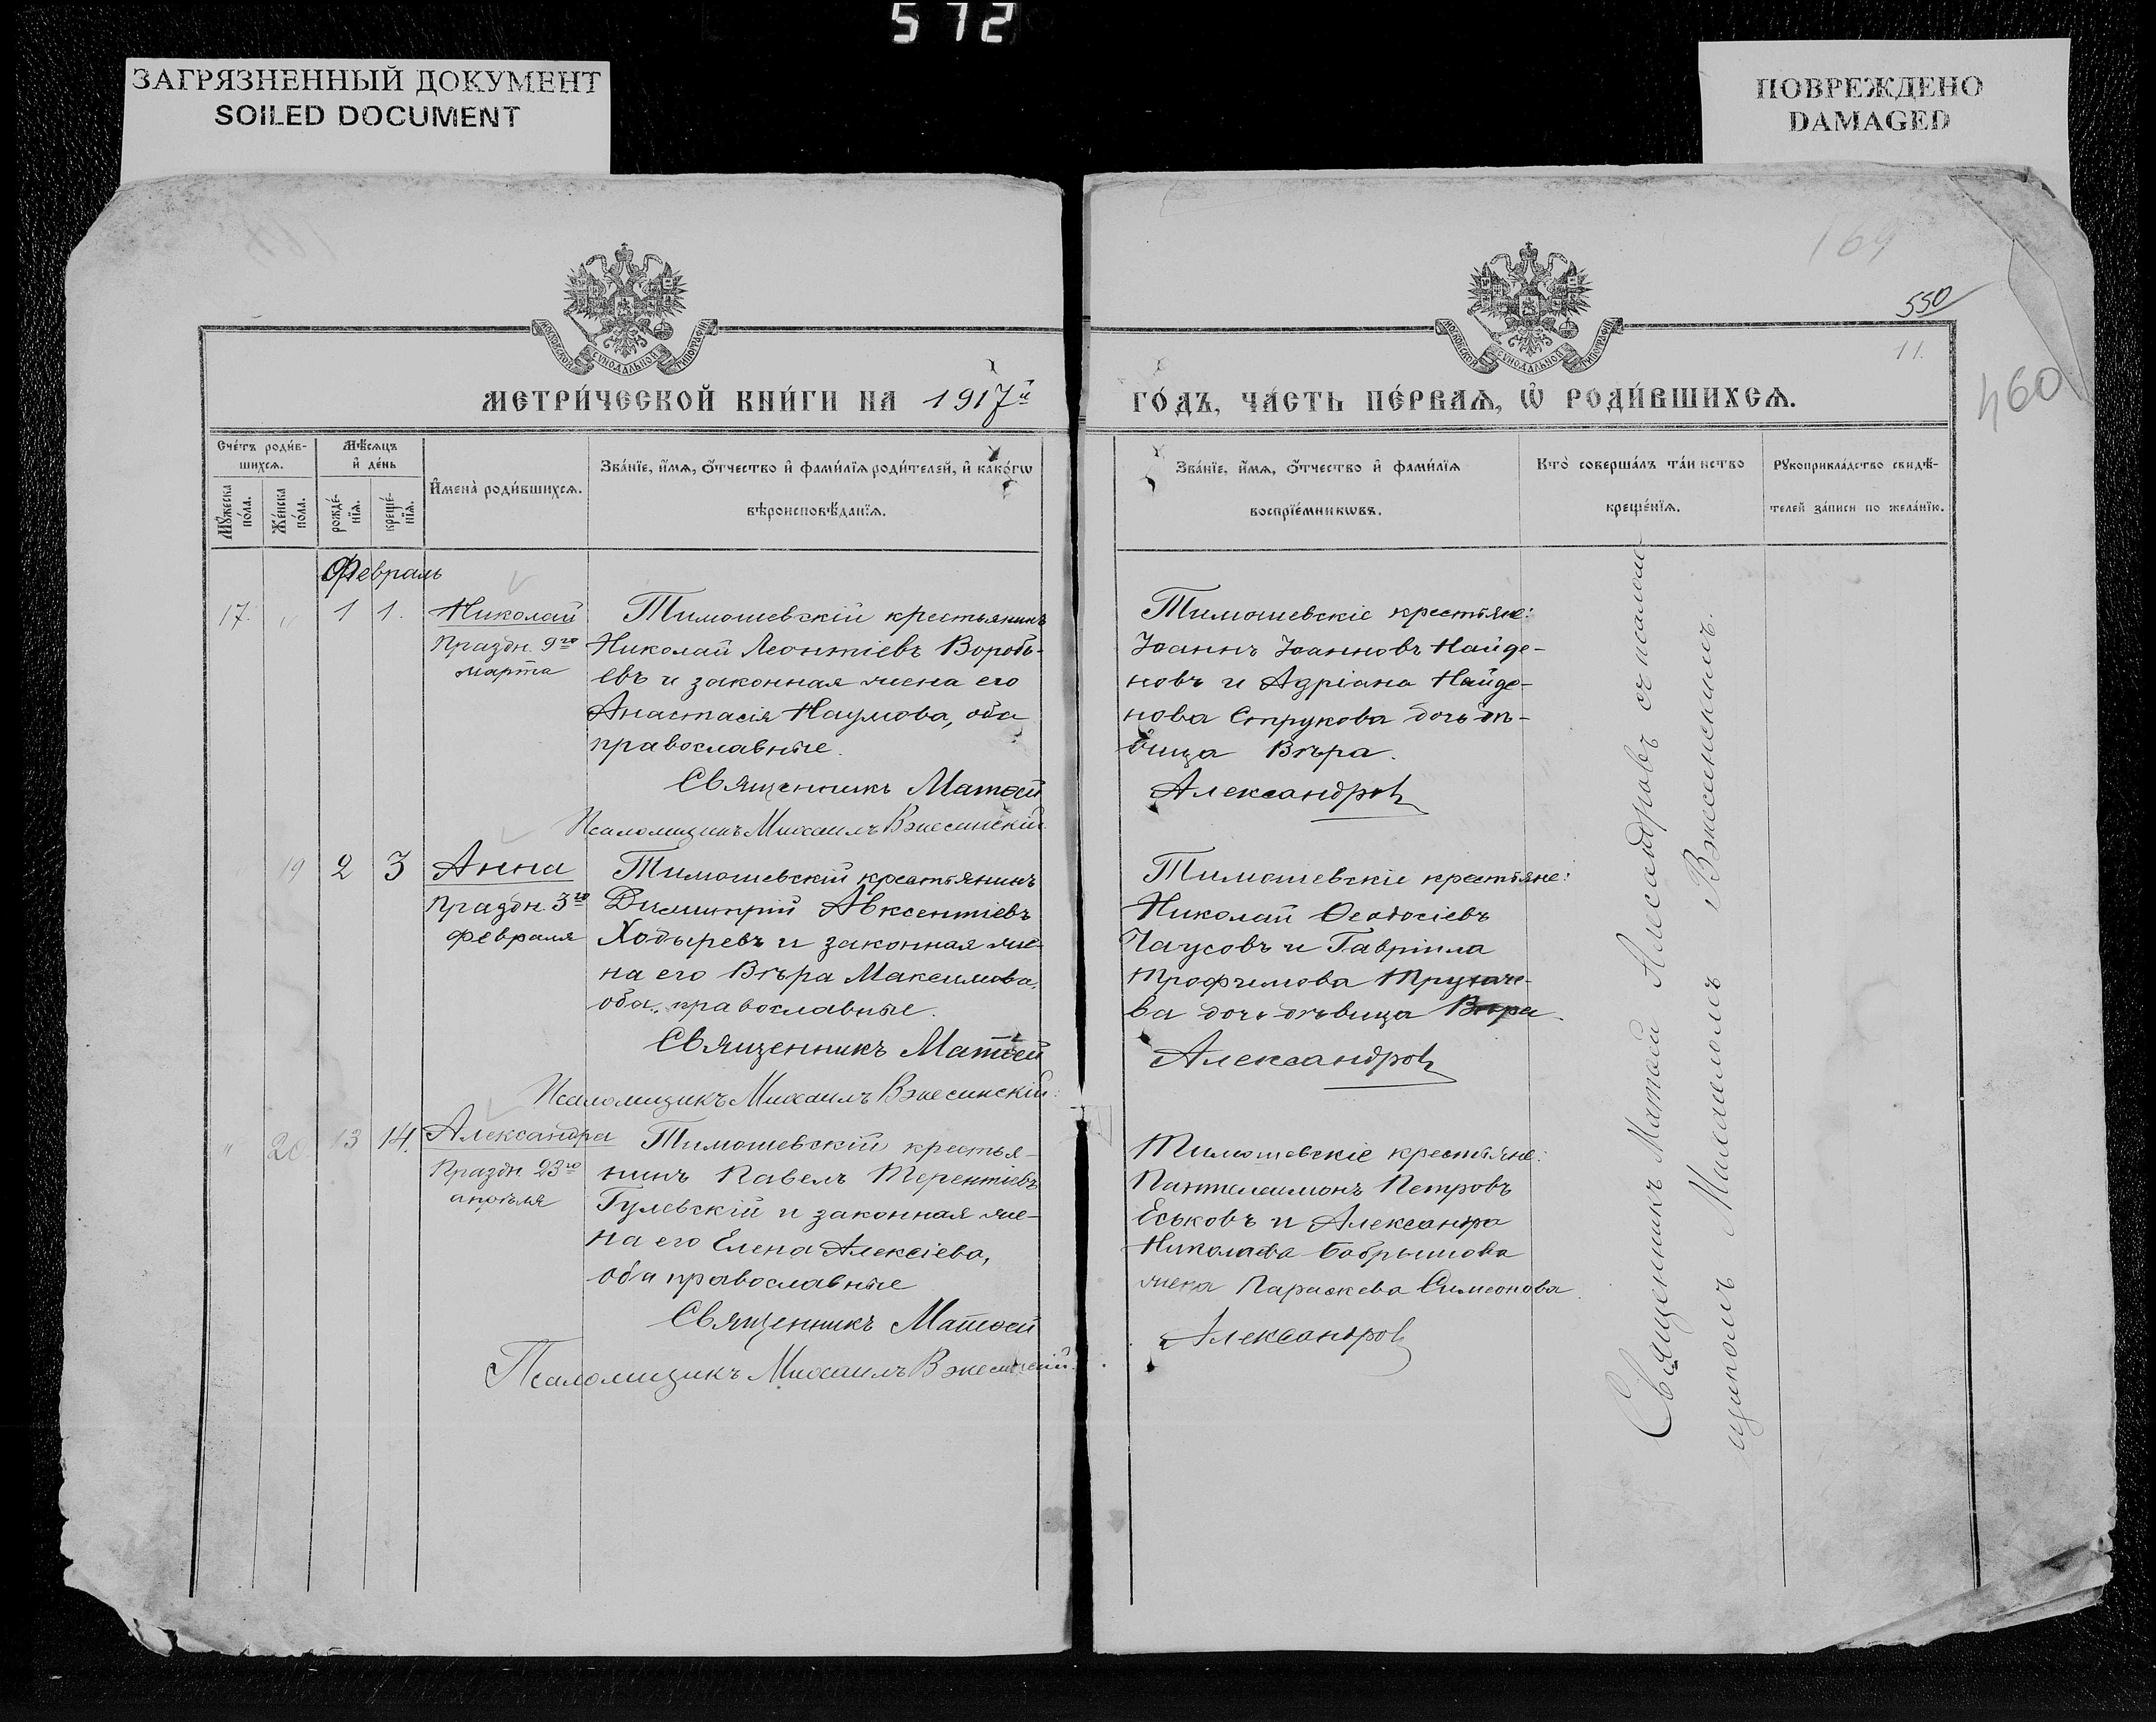 572
ЗАГРЯЗНЕННЫЙ ДОКУМЕНТ
SOILED DOCUMENT
ПОВРЕЖДЕНО
DAMAGED
169
550
11.
460
МОСКОВСКОЙ СѴНОДАЛЬНОЙ ТИПОГРАФІИ
МОСКОВСКОЙ СѴНОДАЛЬНОЙ ТИПОГРАФІИ
МЕТРИ́ЧЕСКОЙ КНИ́ГИ НА 1917й
ГО́ДЪ, ЧА́СТЬ ПЕ́РВАѦ, Ѡ҆ РОДИ́ВШИХСѦ.
Сче́тъ роди́в-
шихсѧ.
Мꙋ́жеска по́ла.
Же́нска по́ла.
Мѣ́сѧцъ
и҆ де́нь
рожде́-
нїѧ.
креще́-
нїѧ.
И҆мена̀ роди́вшихсѧ.
Зва́нїе, и҆́мѧ, ѻ҆́тчество и҆ фами́лїѧ роди́телей, и҆ како́гѡ
вѣроисповѣ́данїѧ.
Зва́нїе, и҆́мѧ, ѻ҆́тчество и҆ фами́лїѧ
воспрїе́мникѡвъ.
Кто̀ соверша́лъ та́инство
креще́нїѧ.
Рꙋкоприкла́дство свидѣ́-
телей за́писи по жела́нїю.
Февраль
17. „ 1 1. Николай
Праздн. 9го
марта
Тимошевскій крестьянинъ
Николай Леонтіевъ Воробь-
евъ и законная жена его
Анастасія Наумова, оба
православные.
Священникъ Матѳей
Псаломщикъ Михаилъ Вжесинскій.
Тимошевскіе крестьяне:
Іоаннъ Іоанновъ Найде-
новъ и Адріана Найде-
нова Струкова дочь дѣ-
вица Вѣра.
Александровъ
19 2 3 Анна
Праздн. 3го
февраля
Тимошевскій крестьянинъ
Димитрій Авксентіевъ
Ходыревъ и законная же-
на его Вѣра Максимова,
оба православные.
Священникъ Матѳей
Псаломщикъ Михаилъ Вжесинскій.
Тимошевскіе крестьяне:
Николай Ѳеодосіевъ
Чаусовъ и Гавріила
Трофимова
ва дочь дѣвица Вѣра.
Александровъ
„ 20. 13 14. Александра
Праздн. 23го
апрѣля
Тимошевскій крестья-
нинъ Павелъ Терентіевъ
Гулевскій и законная же-
на его Елена Алексіева,
оба православные
Священникъ Матѳей
Псаломщикъ Михаилъ Вжесинскій.
Тимошевскіе крестьяне:
Пантелеимонъ Петровъ
Еськовъ и Александра
Николаева Бобрышова
жена Параскева Симеонова.
Александровъ
Священникъ Матѳей Александровъ съ псалом-
щикомъ Михаиломъ Вжесинскимъ.